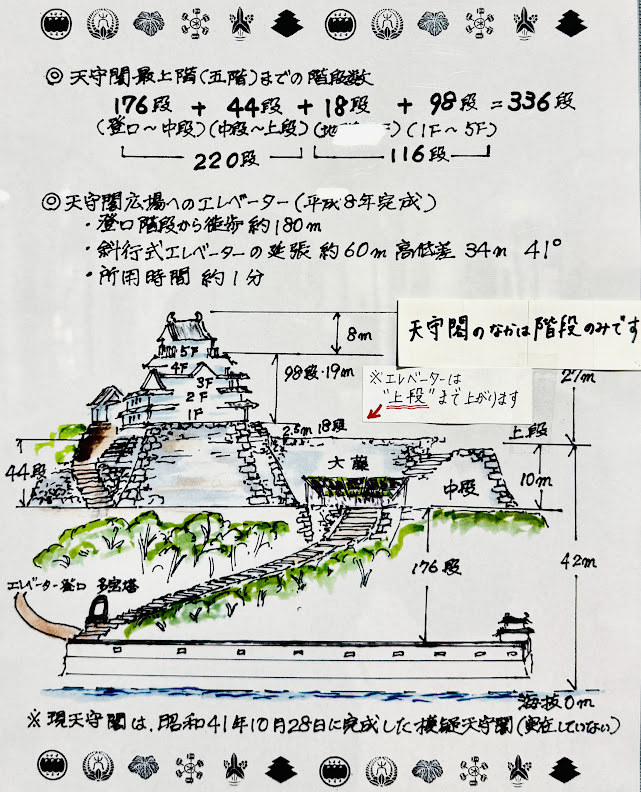 ◎天守閣最上階(五階)までの階段数
176段 + 44段 + 18段 + 98段 = 336段
(登口～中段)(中段～上段)(地 F)(1F～5F)
220段 116段
◎天守閣広場へのエレベーター(平成8年完成)
・登口階段から徒歩 約180m
・斜行式エレベーターの延長 約60m 高低差 34m 41°
・所用時間 約1分
天守閣のなかは階段のみです
8m
5F
4F
3F
2F
1F
98段・19m
※エレベーターは
"上段"まで上がります
27m
2.5m 18段
上段
44段
大藤
中段
10m
176段
42m
エレベーター登口 多宝塔
海抜0m
※現天守閣は、昭和41年10月28日に完成した模擬天守閣(実在していない)